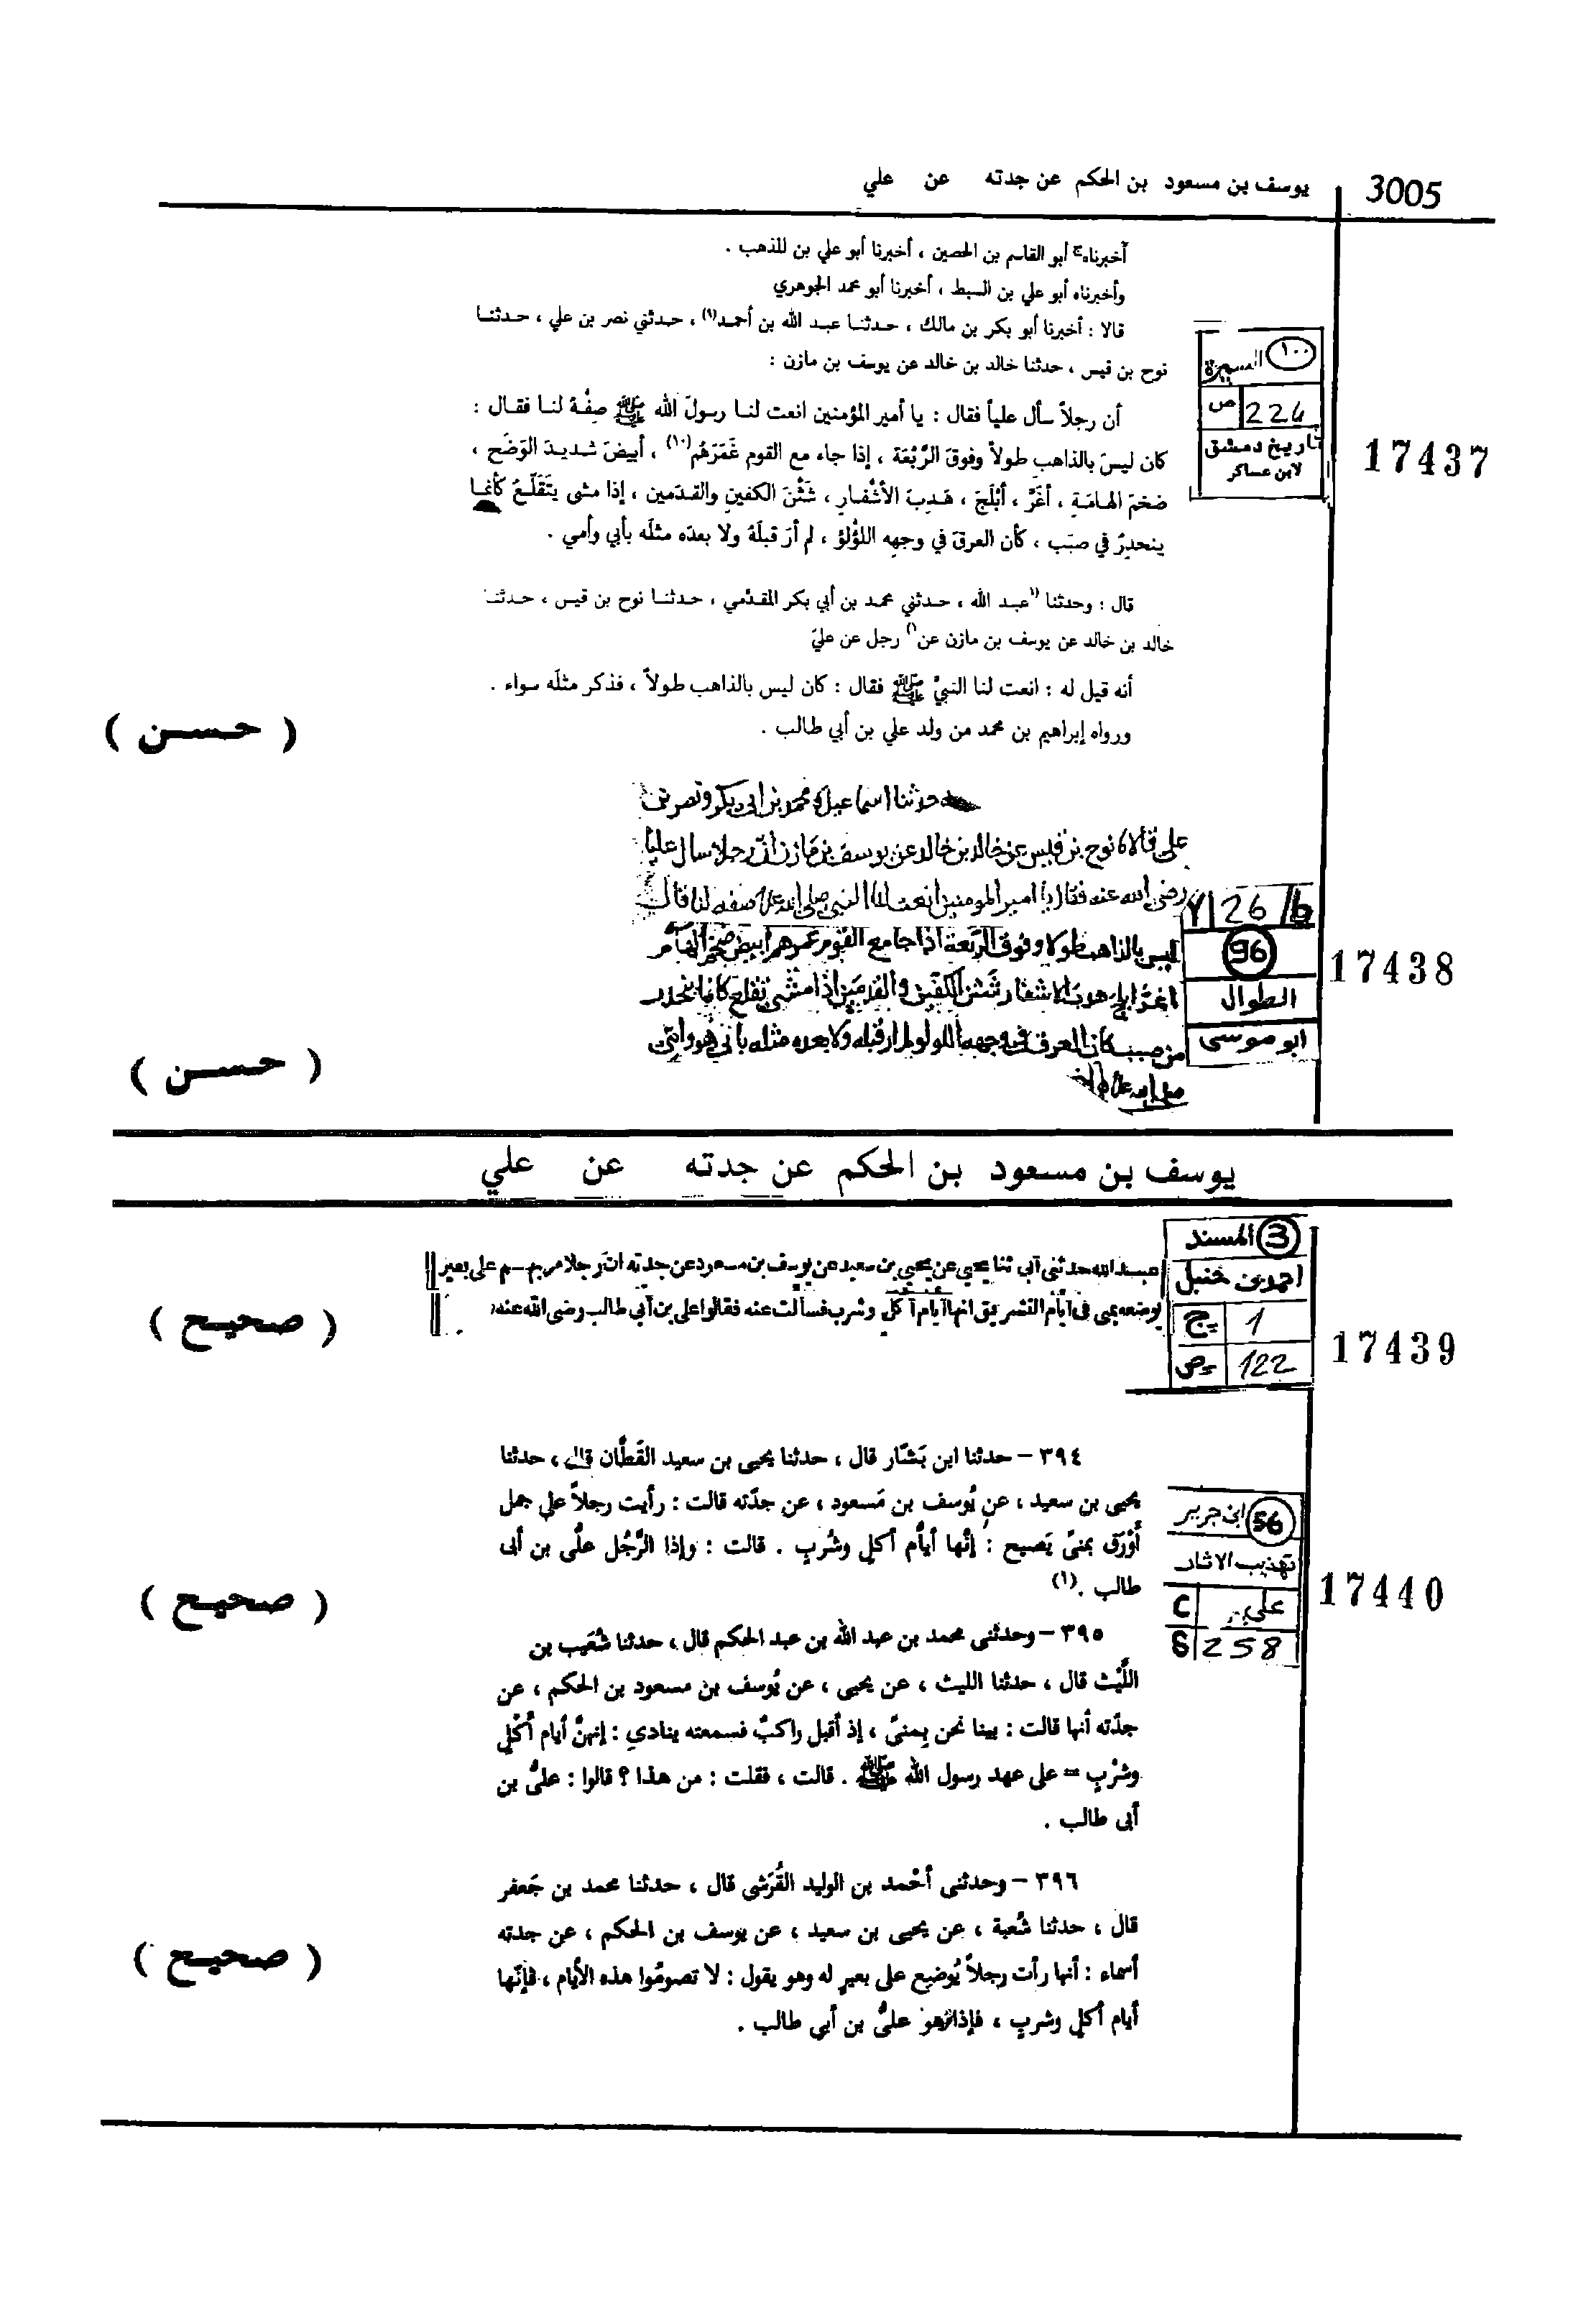 يوسف بن مسعود بن الحكم عن جدته عن علي
3005
أخبرناه أبو القاسم بن الحصين ، أخبرنا أبو علي بن المذهب .
وأخبرناه أبو علي بن السبط ، أخبرنا أبو محمد الجوهري
قالا : أخبرنا أبو بكر بن مالك ، حدثنا عبد الله بن أحمد(٩) ، حدثني نصر بن علي ، حدثنا
نوح بن قيس ، حدثنا خالد بن خالد عن يوسف بن مازن :
أن رجلاً سأل علياً فقال : يا أمير المؤمنين انعت لنا رسولَ الله ﷺ صِفْهُ لنا فقال :
كان ليسَ بالذاهبِ طولاً وفوقَ الرَّبْعَة ، إذا جاء مع القوم غَمَرَهُم(١٠) ، أبيضَ شديدَ الوَضَح ،
ضخمَ الهامَةِ ، أغَرَّ ، أبْلَجَ ، هَدِبَ الأشْفارِ ، شَثْنَ الكفينِ والقدَمين ، إذا مشى يتَقَلَّعُ كأنما
ينحدِرُ في صبَب ، كأن العرقَ في وجهِه اللؤْلؤ ، لم أرَ قبلَهُ ولا بعدَه مثلَه بأبي وأمي .
السيرة ١٠٠
ص 224
تاريخ دمشق
لابن عساكر
17437
قال : وحدثنا عبد الله ، حدثني محمد بن أبي بكر المقدّمي ، حدثنا نوح بن قيس ، حدثنا
خالد بن خالد عن يوسف بن مازن عن رجل عن عليّ
أنه قيل له : انعت لنا النبيَّ ﷺ فقال : كان ليس بالذاهب طولاً ، فذكر مثلَه سواء .
ورواه إبراهيم بن محمد من ولد علي بن أبي طالب .
( حسن )
حدثنا اسماعيل و محمد بن ابي بكر و نصر بن
علي قالا نوح بن قيس عن خالد بن خالد عن يوسف بن مازن ان رجلا سال عليا
رضي الله عنه فقال يا امير المومنين انعت لنا النبي صلى الله عليه صفه لنا قال
ليس بالذاهب طولا وفوق الربعة اذا جا مع القوم غمرهم ابيض ضخم الهامة
اغر ابلج هدب الاشفار شثن الكفين والقدمين اذا مشى تقلع كانما ينحدر
من صبب كان العرق في وجهه اللولو لم ار قبله ولا بعده مثله بابي هو وامي
صلى الله عليه
26/b
96
الطوال
ابو موسى
17438
( حسن )
يوسف بن مسعود بن الحكم عن جدته عن علي
عبد الله حدثني أبي ثنا يحيى عن يحيى بن سعيد عن يوسف بن مسعود عن جدته أن رجلا مر بهم على بعير
يوضعه بمنى في أيام التشريق انها أيام أكل وشرب فسألت عنه فقالوا على بن أبي طالب رضى الله عنه
المسند 3
احمد بن حنبل
ج 1
ص 122
17439
( صحيح )
٣٩٤ - حدثنا ابن بَشّار قال ، حدثنا يحيى بن سعيد القَطَّان قال ، حدثنا
يحيى بن سعيد ، عن يُوسف بن مَسعود ، عن جدّته قالت : رأيت رجلاً على جمل
أَوْرَق بمنىً يَصيح : إنَّها أيّام أكلٍ وشُربٍ . قالت : وإذا الرَّجُل علُّى بن أبى
طالب .(١)
( صحيح )
ابن جرير 56
تهذيب الاثار
علي
C
S 258
17440
٣٩٥ - وحدثنى محمد بن عبد الله بن عبد الحكم قال ، حدثنا شُعَيب بن
اللَّيْث قال ، حدثنا الليث ، عن يحيى ، عن يُوسف بن مسعود بن الحكم ، عن
جدّته أنها قالت : بينا نحن بِمنىً ، إذ أقبل راكبٌ فسمعته ينادي : إنهنَّ أيام أكْلٍ
وشرْبٍ = على عهد رسول الله ﷺ . قالت ، فقلت : من هذا ؟ قالوا : علىُّ بن
أبى طالب .
٣٩٦ - وحدثنى أحْمد بن الوليد القُرَشى قال ، حدثنا محمد بن جَعفر
قال ، حدثنا شُعبة ، عن يحيى بن سعيد ، عن يوسف بن الحكم ، عن جدته
أسماء : أنها رأت رجلاً يُوضع على بعيرٍ له وهو يقول : لا تصومُوا هذه الأيام ، فإنّها
أيام أكلٍ وشربٍ ، فإذا هو علىُّ بن أبي طالب .
( صحيح )